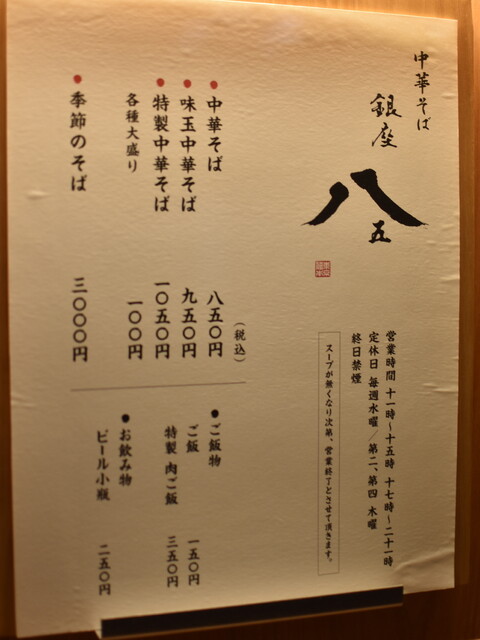 中華そば
銀座
八五
営業時間 十一時～十五時 十七時～二十一時
定休日 毎週水曜／第二、第四 木曜
終日禁煙
スープが無くなり次第、営業終了とさせて頂きます。
（税込）
● 中華そば 八五〇円
● 味玉中華そば 九五〇円
● 特製中華そば 一〇五〇円
各種大盛り 一〇〇円
● 季節のそば 三〇〇〇円
● ご飯物
ご飯 一五〇円
特製 肉ご飯 三五〇円
● お飲み物
ビール小瓶 二五〇円